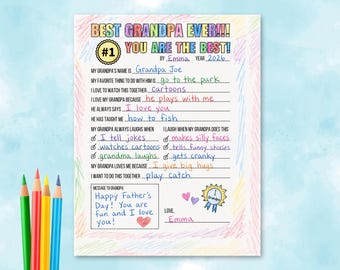 BEST GRANDPA EVER!!!
#1
YOU ARE THE BEST!
BY Emma YEAR 2026
MY GRANDPA'S NAME IS Grandpa Joe
MY FAVORITE THING TO DO WITH HIM IS go to the park
I LOVE TO WATCH THIS TOGETHER cartoons
I LOVE MY GRANDPA BECAUSE he plays with me
HE ALWAYS SAYS I love you
HE HAS TAUGHT ME how to fish
MY GRANDPA ALWAYS LAUGHS WHEN
I tell jokes
watches cartoons
grandma laughs
I LAUGH WHEN MY GRANDPA DOES THIS
makes silly faces
tells funny stories
gets cranky
MY GRANDPA LOVES ME BECAUSE I give big hugs
I WANT TO DO THIS TOGETHER play catch
MESSAGE TO GRANDPA:
Happy Father's
Day! You are
fun and I love
you!
LOVE,
Emma